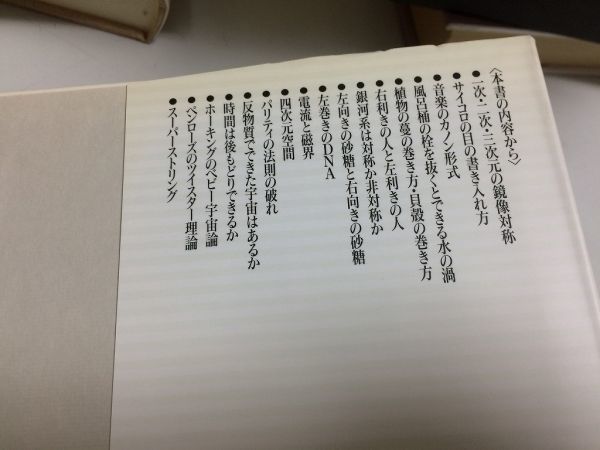 〈本書の内容から〉
●一次・二次・三次元の鏡像対称
●サイコロの目の書き入れ方
●音楽のカノン形式
●風呂桶の栓を抜くとできる水の渦
●植物の蔓の巻き方・貝殻の巻き方
●右利きの人と左利きの人
●銀河系は対称か非対称か
●左向きの砂糖と右向きの砂糖
●左巻きのDNA
●電流と磁界
●四次元空間
●パリティの法則の破れ
●反物質でできた宇宙はあるか
●時間は後もどりできるか
●ホーキングのベビー宇宙論
●ペンローズのツイスター理論
●スーパーストリング